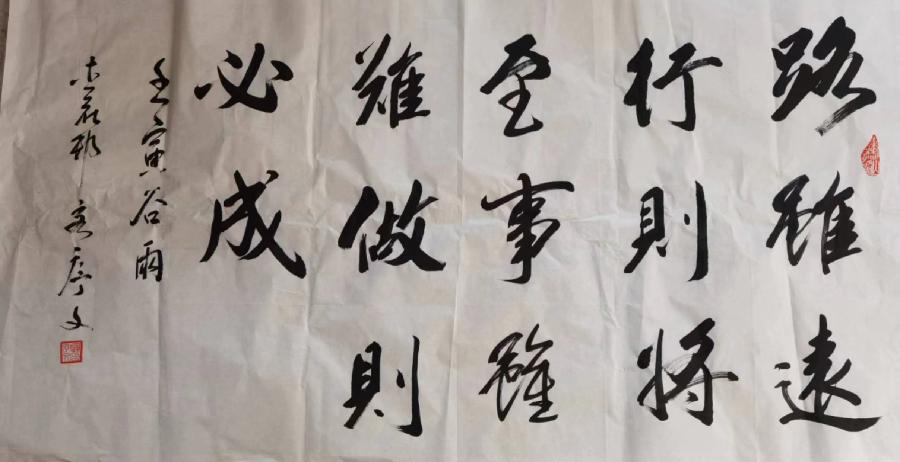 路雖遠
行則將
至事雖
難做則
必成
壬寅谷雨
序文